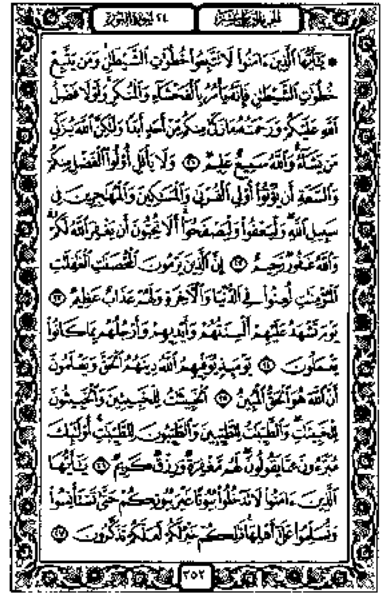 الجزء الثامن عشر
٢٤ سورة النور
* يَٰٓأَيُّهَا ٱلَّذِينَ ءَامَنُوا۟ لَا تَتَّبِعُوا۟ خُطُوَٰتِ ٱلشَّيْطَٰنِ وَمَن يَتَّبِعْ
خُطُوَٰتِ ٱلشَّيْطَٰنِ فَإِنَّهُۥ يَأْمُرُ بِٱلْفَحْشَآءِ وَٱلْمُنكَرِ وَلَوْلَا فَضْلُ
ٱللَّهِ عَلَيْكُمْ وَرَحْمَتُهُۥ مَا زَكَىٰ مِنكُم مِّنْ أَحَدٍ أَبَدًا وَلَٰكِنَّ ٱللَّهَ يُزَكِّى
مَن يَشَآءُ وَٱللَّهُ سَمِيعٌ عَلِيمٌ ٢١ وَلَا يَأْتَلِ أُو۟لُوا۟ ٱلْفَضْلِ مِنكُمْ
وَٱلسَّعَةِ أَن يُؤْتُوٓا۟ أُو۟لِى ٱلْقُرْبَىٰ وَٱلْمَسَٰكِينَ وَٱلْمُهَٰجِرِينَ فِى
سَبِيلِ ٱللَّهِ وَلْيَعْفُوا۟ وَلْيَصْفَحُوٓا۟ أَلَا تُحِبُّونَ أَن يَغْفِرَ ٱللَّهُ لَكُمْ
وَٱللَّهُ غَفُورٌ رَّحِيمٌ ٢٢ إِنَّ ٱلَّذِينَ يَرْمُونَ ٱلْمُحْصَنَٰتِ ٱلْغَٰفِلَٰتِ
ٱلْمُؤْمِنَٰتِ لُعِنُوا۟ فِى ٱلدُّنْيَا وَٱلْءَاخِرَةِ وَلَهُمْ عَذَابٌ عَظِيمٌ ٢٣
يَوْمَ تَشْهَدُ عَلَيْهِمْ أَلْسِنَتُهُمْ وَأَيْدِيهِمْ وَأَرْجُلُهُم بِمَا كَانُوا۟
يَعْمَلُونَ ٢٤ يَوْمَئِذٍ يُوَفِّيهِمُ ٱللَّهُ دِينَهُمُ ٱلْحَقَّ وَيَعْلَمُونَ
أَنَّ ٱللَّهَ هُوَ ٱلْحَقُّ ٱلْمُبِينُ ٢٥ ٱلْخَبِيثَٰتُ لِلْخَبِيثِينَ وَٱلْخَبِيثُونَ
لِلْخَبِيثَٰتِ وَٱلطَّيِّبَٰتُ لِلطَّيِّبِينَ وَٱلطَّيِّبُونَ لِلطَّيِّبَٰتِ أُو۟لَٰٓئِكَ
مُبَرَّءُونَ مِمَّا يَقُولُونَ لَهُم مَّغْفِرَةٌ وَرِزْقٌ كَرِيمٌ ٢٦ يَٰٓأَيُّهَا
ٱلَّذِينَ ءَامَنُوا۟ لَا تَدْخُلُوا۟ بُيُوتًا غَيْرَ بُيُوتِكُمْ حَتَّىٰ تَسْتَأْنِسُوا۟
وَتُسَلِّمُوا۟ عَلَىٰٓ أَهْلِهَا ذَٰلِكُمْ خَيْرٌ لَّكُمْ لَعَلَّكُمْ تَذَكَّرُونَ ٢٧
٣٥٢